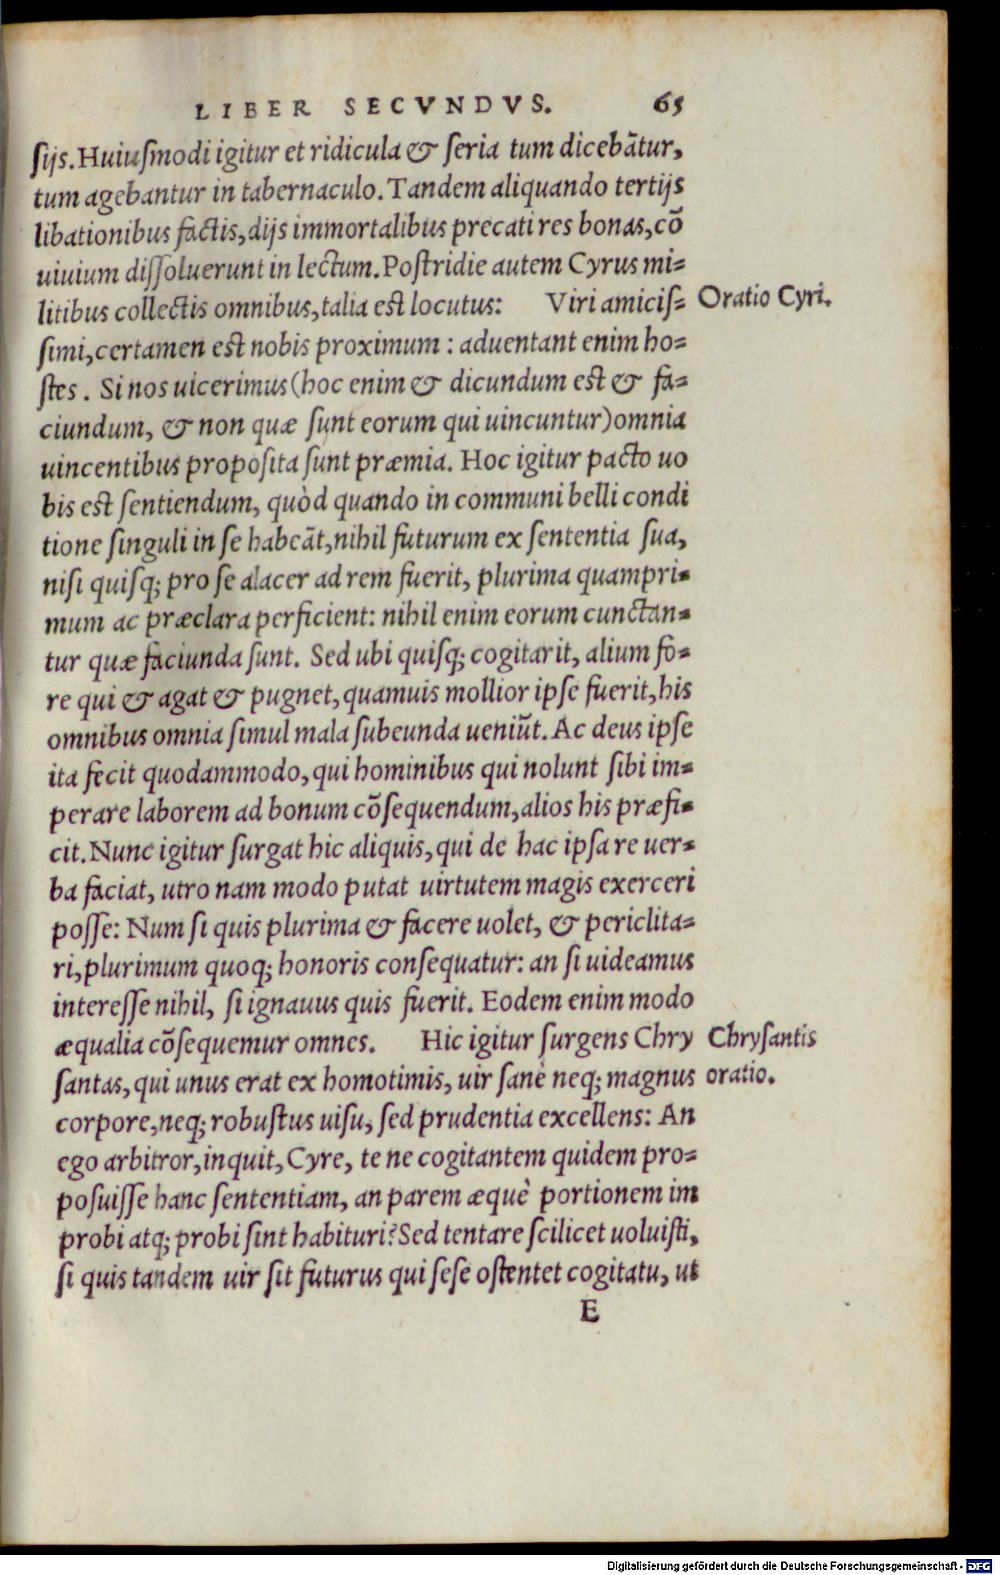 LIBER SECVNDVS. 65
sijs. Huiusmodi igitur et ridicula & seria tum dicebãtur,
tum agebantur in tabernaculo. Tandem aliquando tertijs
libationibus factis, dijs immortalibus precati res bonas, cõ
uiuium dissoluerunt in lectum. Postridie autem Cyrus mi-
litibus collectis omnibus, talia est locutus: Viri amicis- Oratio Cyri.
simi, certamen est nobis proximum : aduentant enim ho-
stes . Si nos uicerimus (hoc enim & dicundum est & fa-
ciundum, & non quæ sunt eorum qui uincuntur) omnia
uincentibus proposita sunt præmia. Hoc igitur pacto uo
bis est sentiendum, quòd quando in communi belli condi
tione singuli in se habeãt, nihil futurum ex sententia sua,
nisi quisq; pro se alacer ad rem fuerit, plurima quampri-
mum ac præclara perficient: nihil enim eorum cunctan-
tur quæ faciunda sunt. Sed ubi quisq; cogitarit, alium fo-
re qui & agat & pugnet, quamuis mollior ipse fuerit, his
omnibus omnia simul mala subeunda ueniũt. Ac deus ipse
ita fecit quodammodo, qui hominibus qui nolunt sibi im-
perare laborem ad bonum cõsequendum, alios his præfi-
cit. Nunc igitur surgat hic aliquis, qui de hac ipsa re uer-
ba faciat, utro nam modo putat uirtutem magis exerceri
posse: Num si quis plurima & facere uolet, & periclita-
ri, plurimum quoq; honoris consequatur: an si uideamus
interesse nihil, si ignauus quis fuerit. Eodem enim modo
æqualia cõsequemur omnes. Hic igitur surgens Chry Chrysantis
santas, qui unus erat ex homotimis, uir sanè neq; magnus oratio.
corpore, neq; robustus uisu, sed prudentia excellens: An
ego arbitror, inquit, Cyre, te ne cogitantem quidem pro-
posuisse hanc sententiam, an parem æquè portionem im
probi atq; probi sint habituri? Sed tentare scilicet uoluisti,
si quis tandem uir sit futurus qui sese ostentet cogitatu, ut
E
Digitalisierung gefördert durch die Deutsche Forschungsgemeinschaft - DFG